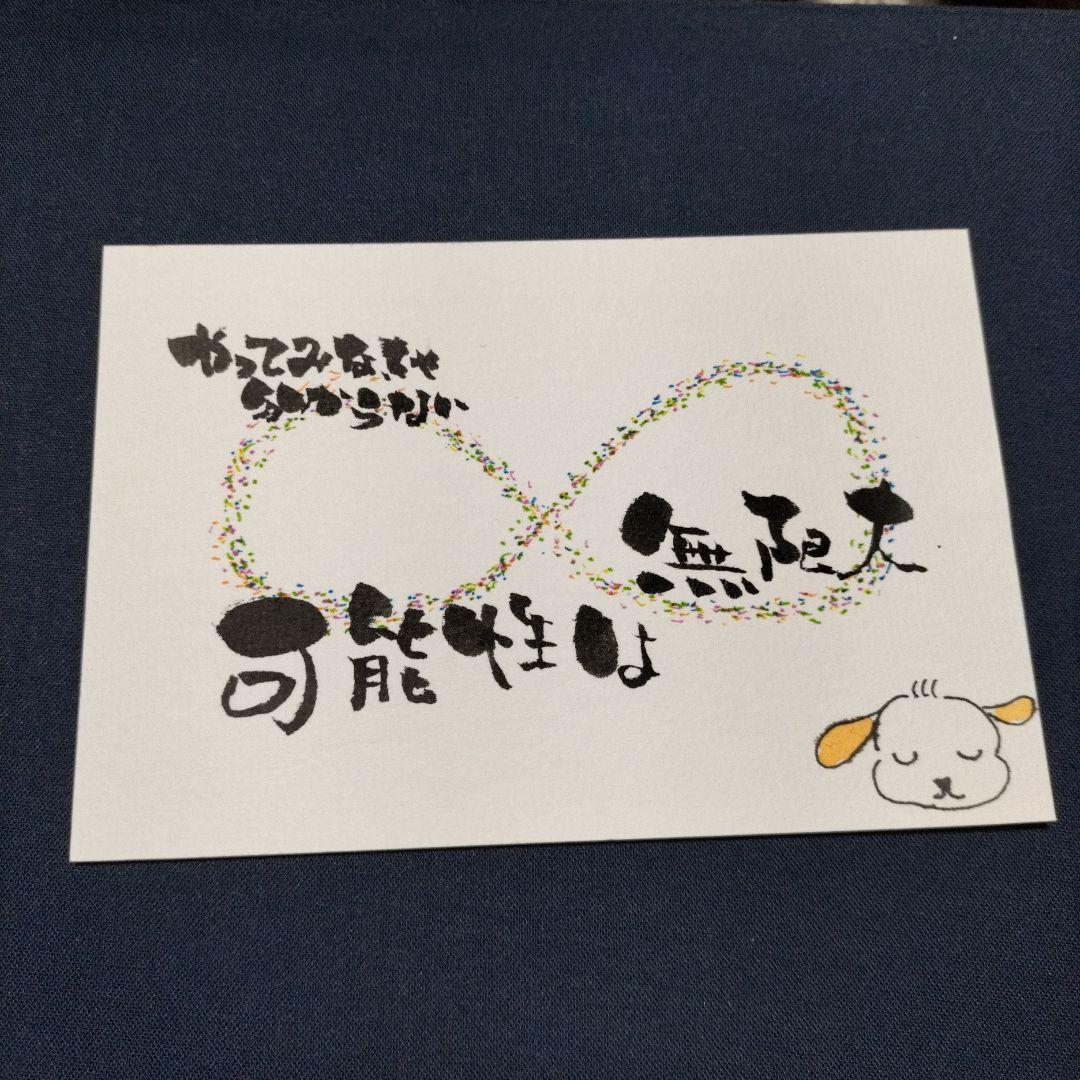 やってみなきゃ
分からない
可能性は
無限大